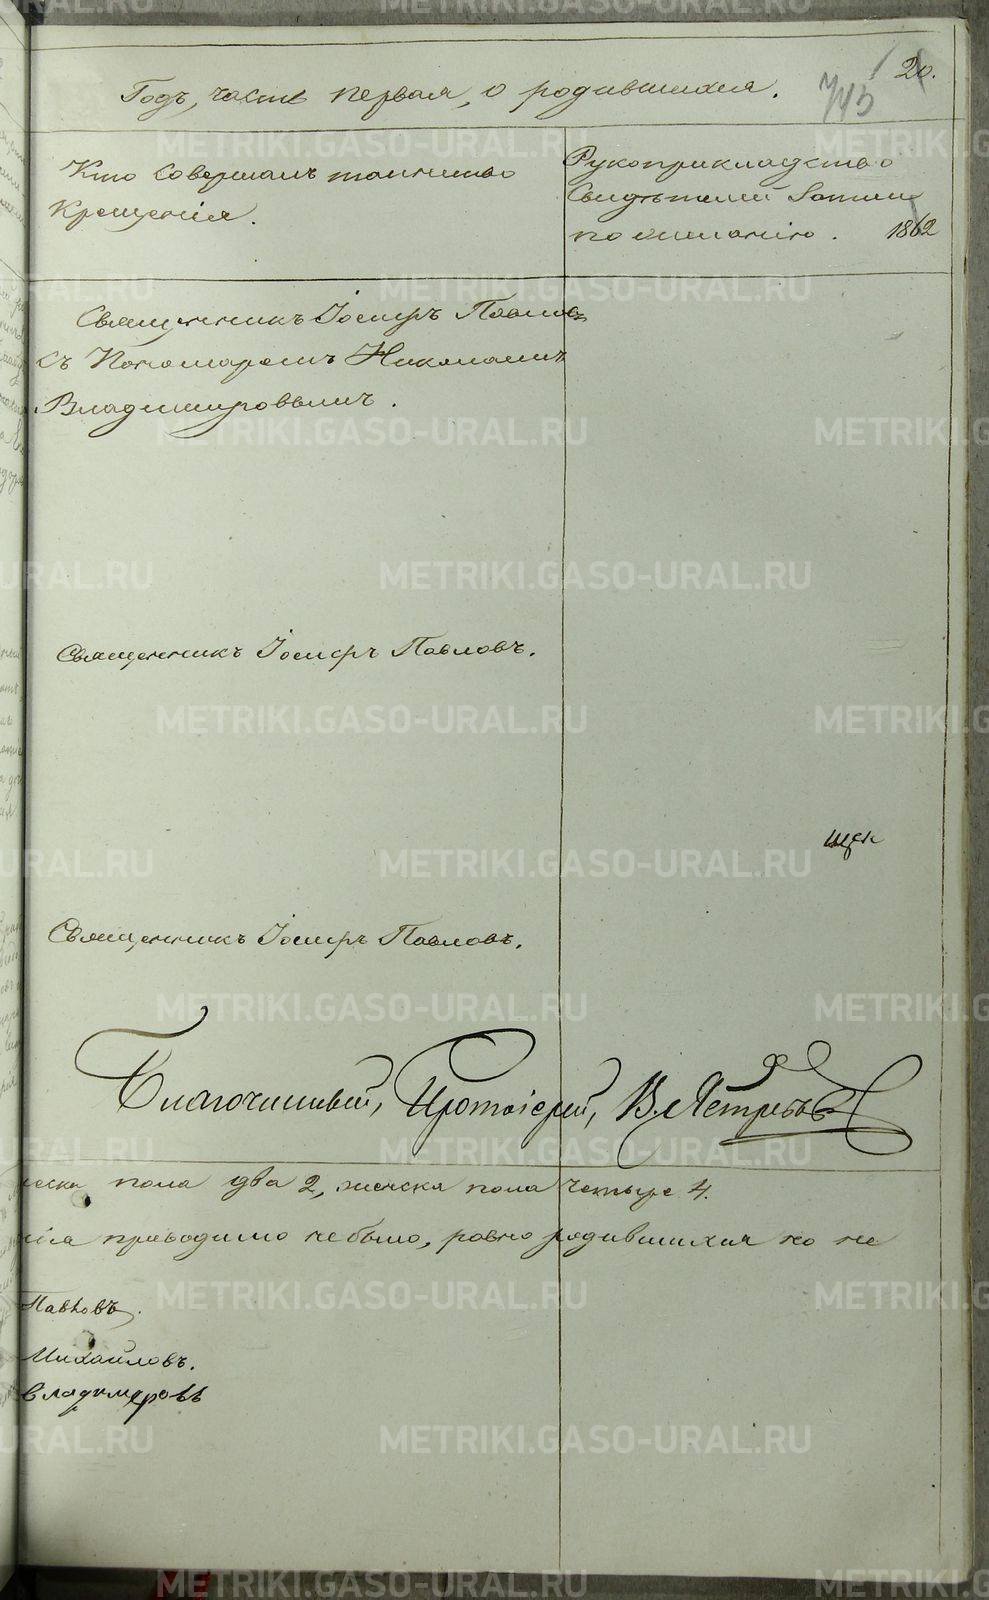 20.
745
Годъ, часть первая, о родившихся.
Кто совершалъ таинство
крещенія.
Рукоприкладство
свидѣтелей записи
по желанію. 1862
Священникъ Іосифъ Павловъ
съ Пономаремъ Николаемъ
Владимировымъ.
Священникъ Іосифъ Павловъ.
Священникъ Іосифъ Павловъ.
Благочинный, Протоіерей, В. Ястребовъ
пола два 2, женска пола четыре 4.
приводимо небыло, ровно родившихся но не
Павловъ.
Михайловъ.
Владимировъ
METRIKI.GASO-URAL.RU